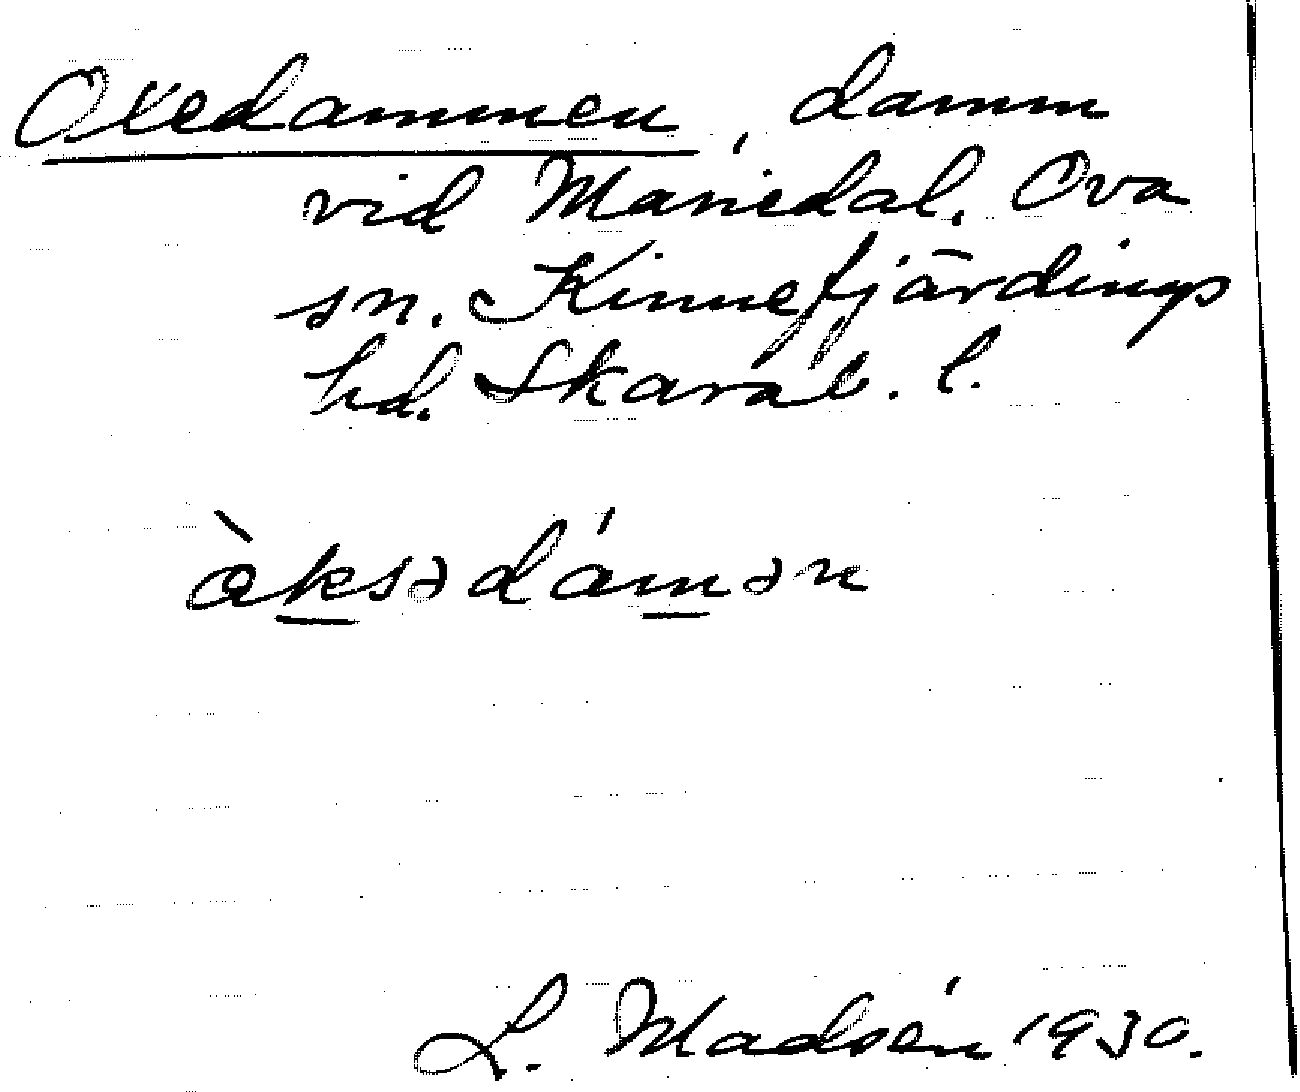 Oxedammen, damm
vid Mariedal. Ova
sn. Kinnefjärdings
hd. Skarab. l.
òksədámən
L. Madsén 1930.